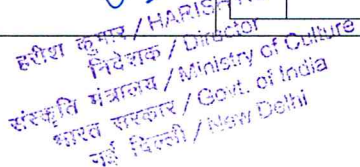 हरीश कुमार / HARISH
निदेशक / Director
संस्कृति मंत्रालय / Ministry of Culture
भारत सरकार / Govt. of India
नई दिल्ली / New Delhi